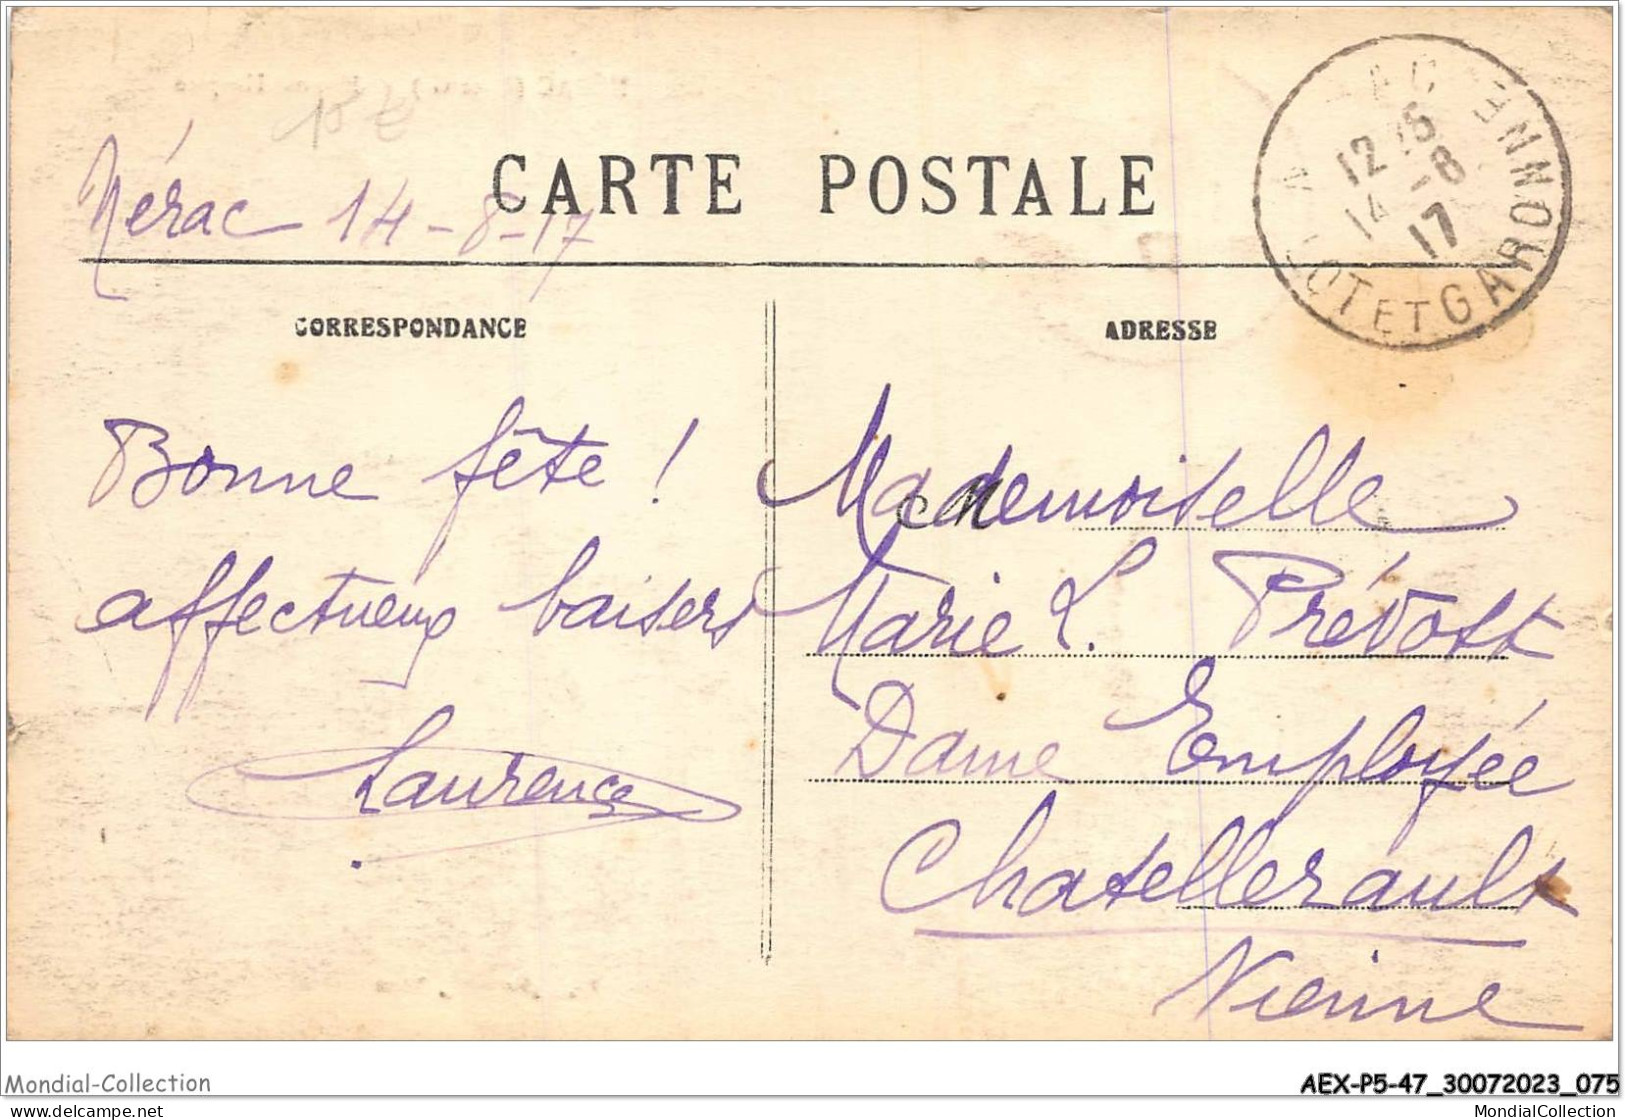 CARTE POSTALE
Nérac 14-8-17
12 15
14 -8
17
LOT ET GARONNE
CORRESPONDANCE
ADRESSE
Bonne fête !
affectueux baisers
Laurence
Mademoiselle
Marie L. Prévost
Dame Employée
Chatellerault
Vienne
Mondial-Collection
AEX-P5-47_30072023_075
www.delcampe.net
MondialCollection